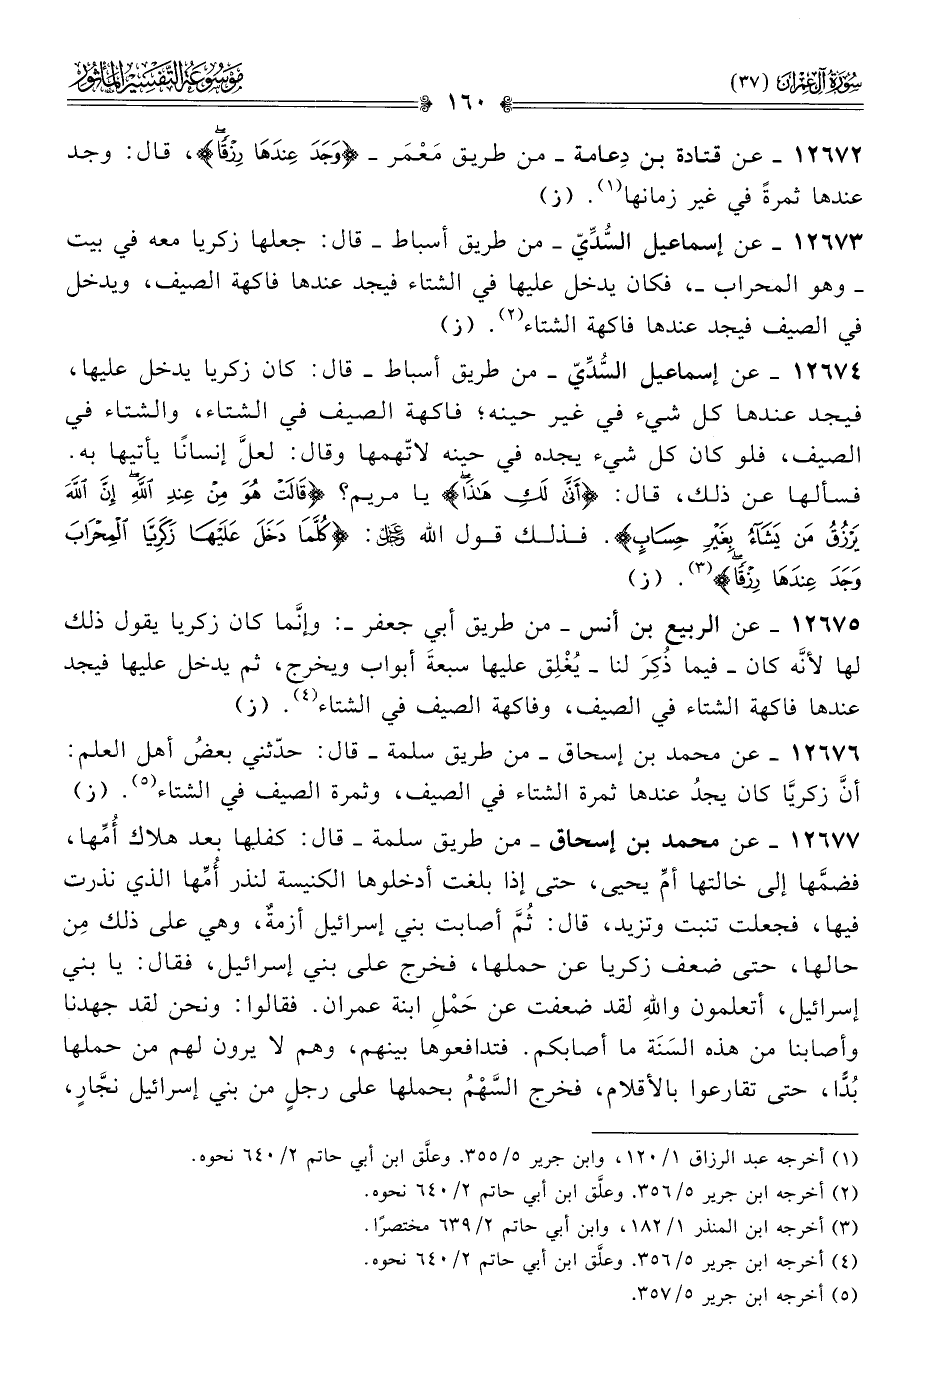 سُورَةُ آلِ عِمْرَانَ (٣٧)
مَوْسُوعَةُ التَّفْسِيرِ المَأْثُورِ
١٦٠
١٢٦٧٢ ـ عن قتادة بن دِعامة ـ من طريق مَعْمَر ـ ﴿وَجَدَ عِندَهَا رِزْقًاۖ﴾، قال: وجد
عندها ثمرةً في غير زمانها(١). (ز)
١٢٦٧٣ ـ عن إسماعيل السُّدِّيّ ـ من طريق أسباط ـ قال: جعلها زكريا معه في بيت
ـ وهو المحراب ـ، فكان يدخل عليها في الشتاء فيجد عندها فاكهة الصيف، ويدخل
في الصيف فيجد عندها فاكهة الشتاء(٢). (ز)
١٢٦٧٤ ـ عن إسماعيل السُّدِّيّ ـ من طريق أسباط ـ قال: كان زكريا يدخل عليها،
فيجد عندها كل شيء في غير حينه؛ فاكهة الصيف في الشتاء، والشتاء في
الصيف، فلو كان كل شيء يجده في حينه لاتّهمها وقال: لعلَّ إنسانًا يأتيها به.
فسألها عن ذلك، قال: ﴿أَنَّىٰ لَكِ هَٰذَاۖ﴾ يا مريم؟ ﴿قَالَتْ هُوَ مِنْ عِندِ ٱللَّهِۖ إِنَّ ٱللَّهَ
يَرْزُقُ مَن يَشَآءُ بِغَيْرِ حِسَابٍ﴾. فذلك قول الله ﷻ: ﴿كُلَّمَا دَخَلَ عَلَيْهَا زَكَرِيَّا ٱلْمِحْرَابَ
وَجَدَ عِندَهَا رِزْقًاۖ﴾(٣). (ز)
١٢٦٧٥ ـ عن الربيع بن أنس ـ من طريق أبي جعفر ـ: وإنَّما كان زكريا يقول ذلك
لها لأنَّه كان ـ فيما ذُكِرَ لنا ـ يُغْلِق عليها سبعةَ أبواب ويخرج، ثم يدخل عليها فيجد
عندها فاكهة الشتاء في الصيف، وفاكهة الصيف في الشتاء(٤). (ز)
١٢٦٧٦ ـ عن محمد بن إسحاق ـ من طريق سلمة ـ قال: حدّثني بعضُ أهل العلم:
أنَّ زكريَّا كان يجدُ عندها ثمرة الشتاء في الصيف، وثمرة الصيف في الشتاء(٥). (ز)
١٢٦٧٧ ـ عن محمد بن إسحاق ـ من طريق سلمة ـ قال: كفلها بعد هلاك أُمِّها،
فضمَّها إلى خالتها أمِّ يحيى، حتى إذا بلغت أدخلوها الكنيسة لنذر أُمِّها الذي نذرت
فيها، فجعلت تنبت وتزيد، قال: ثُمَّ أصابت بني إسرائيل أزمةٌ، وهي على ذلك مِن
حالها، حتى ضعف زكريا عن حملها، فخرج على بني إسرائيل، فقال: يا بني
إسرائيل، أتعلمون واللهِ لقد ضعفت عن حَمْلِ ابنة عمران. فقالوا: ونحن لقد جهدنا
وأصابنا من هذه السَنَة ما أصابكم. فتدافعوها بينهم، وهم لا يرون لهم من حملها
بُدًّا، حتى تقارعوا بالأقلام، فخرج السَّهْمُ بحملها على رجلٍ من بني إسرائيل نجَّارٍ،
(١) أخرجه عبد الرزاق ١/ ١٢٠، وابن جرير ٥/ ٣٥٥. وعلَّق ابن أبي حاتم ٢/ ٦٤٠ نحوه.
(٢) أخرجه ابن جرير ٥/ ٣٥٦. وعلَّق ابن أبي حاتم ٢/ ٦٤٠ نحوه.
(٣) أخرجه ابن المنذر ١/ ١٨٢، وابن أبي حاتم ٢/ ٦٣٩ مختصرًا.
(٤) أخرجه ابن جرير ٥/ ٣٥٦. وعلَّق ابن أبي حاتم ٢/ ٦٤٠ نحوه.
(٥) أخرجه ابن جرير ٥/ ٣٥٧.